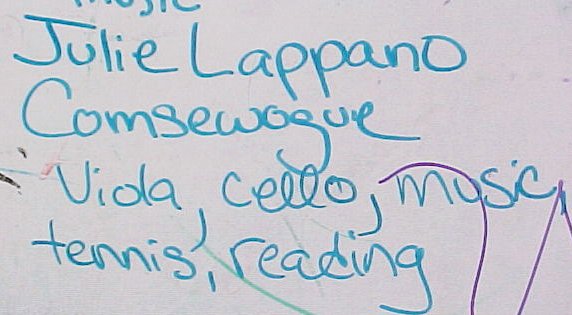 music
Julie Lappano
Comsewogue
Viola, cello, music,
tennis, reading